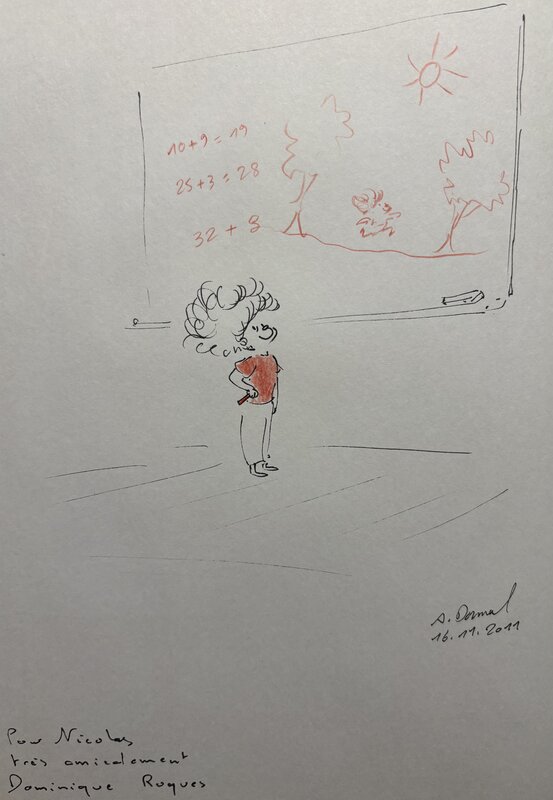 10+9=19
25+3=28
32+8
A. Dormal
16.11.2011
Pour Nicolas
très amicalement
Dominique Roques